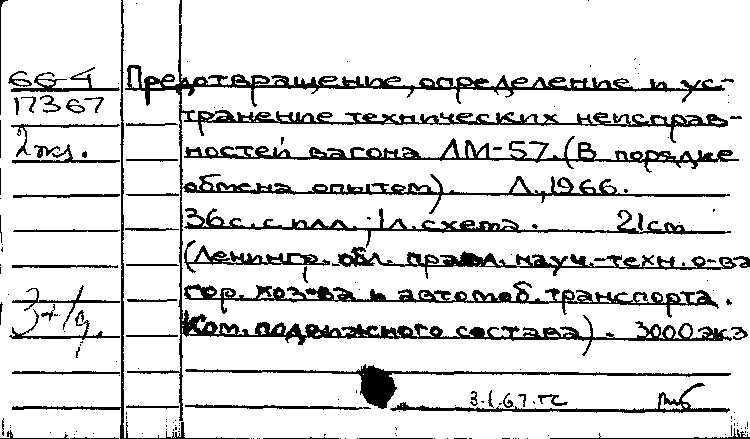 66-4
17367
2 экз.
3+1д.
Предотвращение, определение и ус-
транение технических неисправ-
ностей вагона ЛМ-57. (В порядке
обмена опытом). Л., 1966.
36с. с илл.; 1л. схема. 21см
(Ленингр. обл. правл. науч.-техн. о-ва
гор. хоз-ва и автомоб. транспорта.
Ком. подвижного состава). 3000 экз
3.I.67.тс